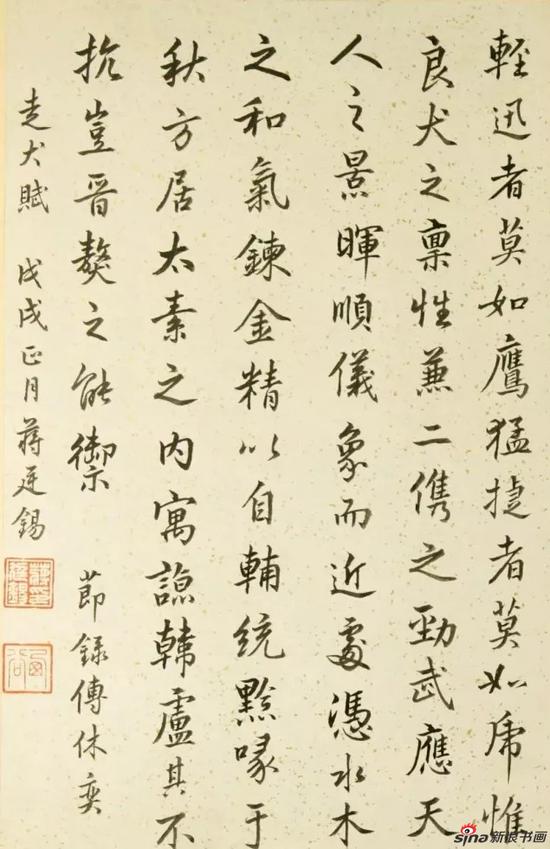 輕迅者莫如鷹猛捷者莫如虎惟
良犬之稟性兼二儁之勁武應天
人之景暉順儀象而近處憑水木
之和氣鍊金精以自輔統黔喙于
秋方居太素之内寓諒韓盧其不
抗豈晉獒之能禦 節錄傅休奕
走犬賦 戊戌正月蔣廷錫
sina新浪书画